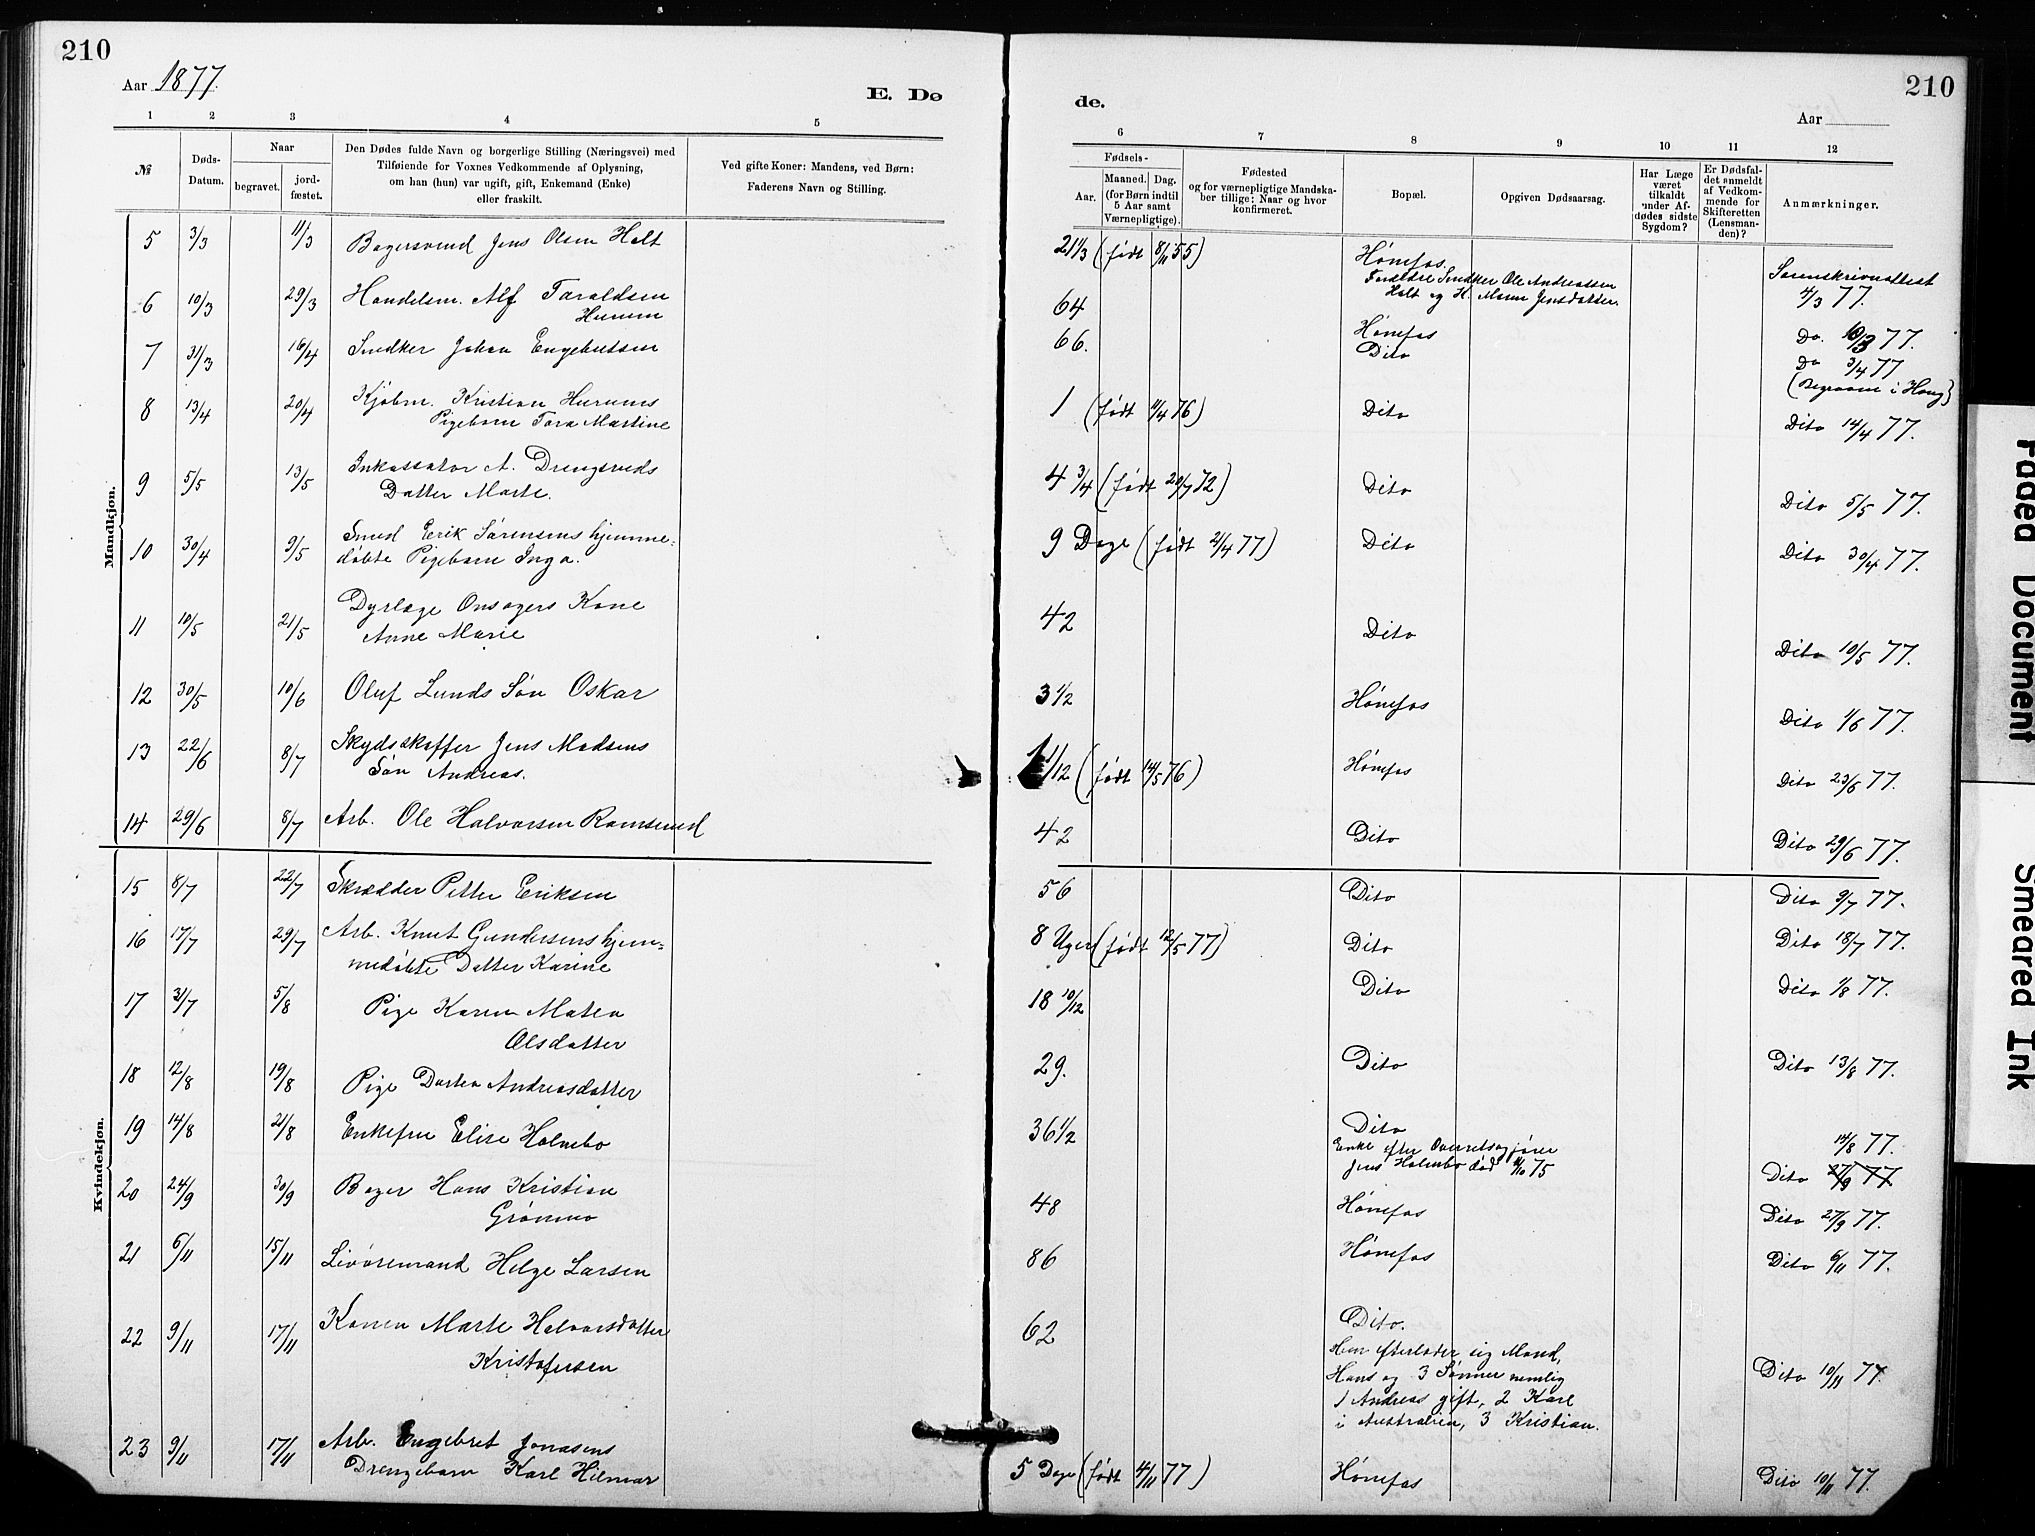 210
Aar 1877.
E. Dø
1 2 3 4 5
№
Døds-
Datum.
Naar
begravet.
jord-
fæstet.
Den Dødes fulde Navn og borgerlige Stilling (Næringsvei) med
Tilføiende for Voxnes Vedkommende af Oplysning,
om han (hun) var ugift, gift, Enkemand (Enke)
eller fraskilt.
Ved gifte Koner: Mandens, ved Børn:
Faderens Navn og Stilling.
Mandkjøn.
5 3/3 11/3 Bagersvend Jens Olsen Holt
6 10/3 29/3 Handelsm. Alf Taraldsen
Hurum
7 31/3 16/4 Snedker Johan Engebretsen
8 13/4 20/4 Kjøbm. Kristian Hurums
Pigebarn Tora Martine
9 5/5 13/5 Inkassator A. Drengsruds
Datter Marte.
10 30/4 9/5 Smed Erik Sørensens hjemme-
døbte Pigebarn Inga.
11 10/5 21/5 Dyrlæge Onsagers Kone
Anne Marie
12 30/5 10/6 Oluf Lunds Søn Oskar
13 22/6 8/7 Skydsskaffer Jens Madsens
Søn Andreas.
14 29/6 8/7 Arb. Ole Halvorsen Ramsrud
Kvindekjøn.
15 8/7 22/7 Skrædder Petter Eriksen
16 17/7 29/7 Arb. Knut Gundersens hjem-
medøbte Datter Karine
17 31/7 5/8 Pige Karen Matea
Olsdatter
18 12/8 19/8 Pige Dortea Andreasdatter
19 14/8 21/8 Enkefru Elise Holmbo
20 24/9 30/9 Bager Hans Kristian
Grønmo
21 6/11 15/11 Livøremand Helge Larsen
22 9/11 17/11 Konen Marte Halvorsdatter
Kristofersen
23 9/11 17/11 Arb. Engebret Jonasens
Drengebarn Karl Hilmar
210
de.
Aar
6 7 8 9 10 11 12
Fødsels-
Aar.
Maaned. Dag.
(for Børn indtil
5 Aar samt
Værnepligtige).
Fødested
og for værnepligtige Mandska-
ber tillige: Naar og hvor
konfirmeret.
Bopæl.
Opgiven Dødsaarsag.
Har Læge
været
tilkaldt
under Af-
dødes sidste
Sygdom?
Er Dødsfal-
det anmeldt
af Vedkom-
mende for
Skifteretten
(Lensman-
den)?
Anmærkninger.
21 1/3 (født 8/11 55) Hønefos.
Forældre Snedker Ole Andreassen
Holt og H. Maren Jensdatter.
Sorenskriverattest
4/3 77.
64 Hønefos Do. 10/3 77.
66. Dito Do 3/4 77
(Begraven i Houg)
1 (født 11/4 76) Dito Dito 14/4 77.
4 3/4 (født 20/7 72) Dito Dito 5/5 77.
9 Dage (født 21/4 77) Dito Dito 30/4 77.
42 Dito Dito 10/5 77.
3 1/2 Hønefos Dito 1/6 77.
1 1/12 (født 14/5 76) Hønefos Dito 23/6 77.
42 Dito Dito 29/6 77.
56 Dito Dito 9/7 77.
8 Uger (født 12/5 77) Dito Dito 18/7 77.
18 10/12 Dito Dito 1/8 77.
29. Dito Dito 13/8 77.
36 1/2 Dito
Enke efter Overretssagfører
Jens Holmbo død 11/10 75
14/8 77.
Dito 27/9 77
48 Hønefos Dito 27/9 77.
86 Hønefos Dito 6/11 77.
62 Dito.
Hun efterlader sig Mand,
Hans og 3 Sønner nemlig
1 Andreas gift, 2 Karl
i Australien, 3 Kristian.
Dito 10/11 77.
5 Dage (født 4/11 77) Hønefos Dito 10/11 77.
Faded Document
Smeared Ink